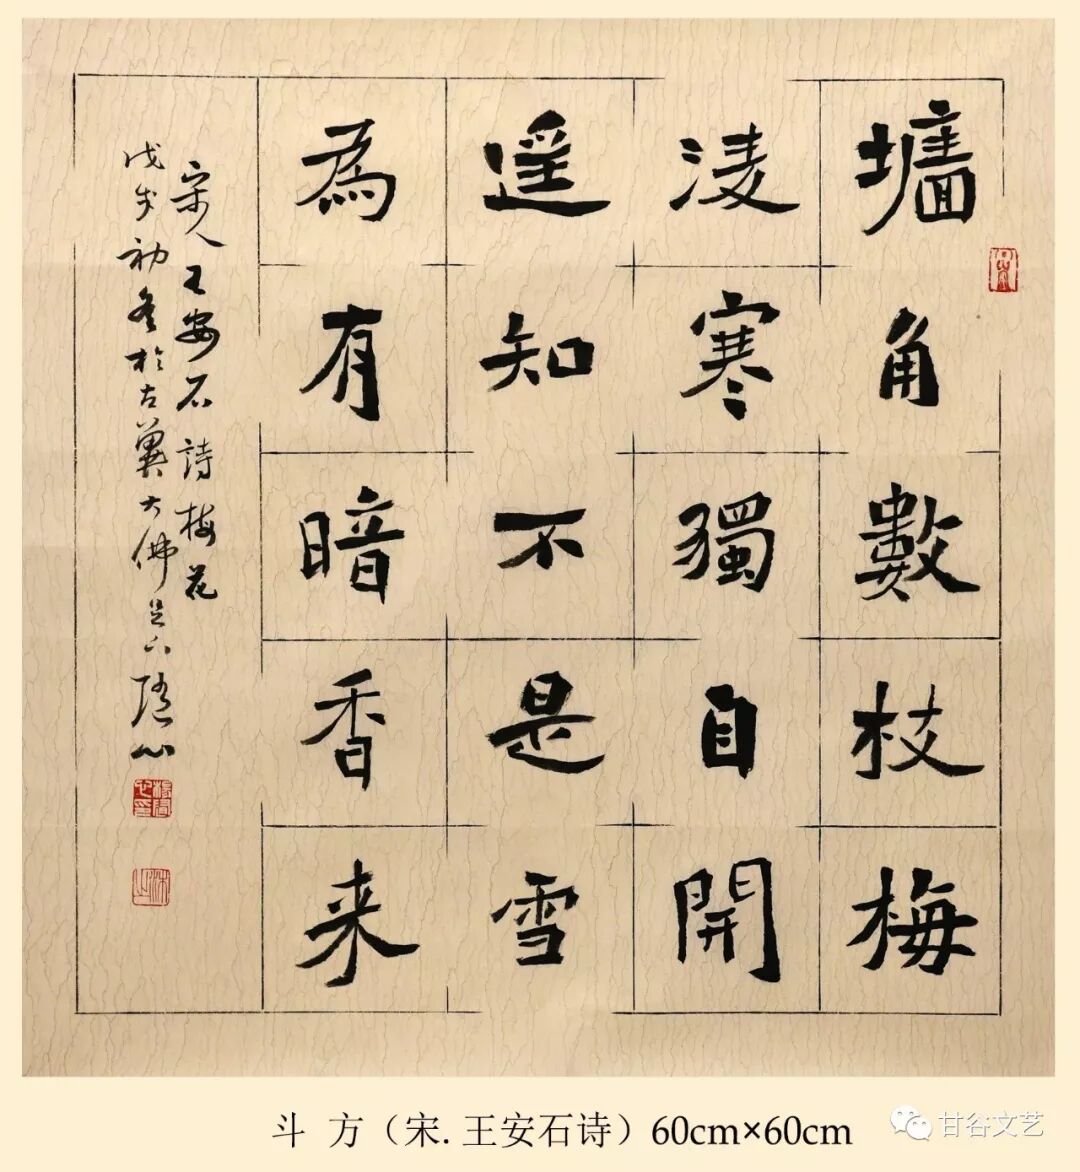 墻角數枝梅
凌寒獨自開
遥知不是雪
為有暗香来
宋人王安石詩梅花
戊戌初冬於古冀大佛足下隱心
斗 方（宋.王安石诗）60cm×60cm
甘谷文艺